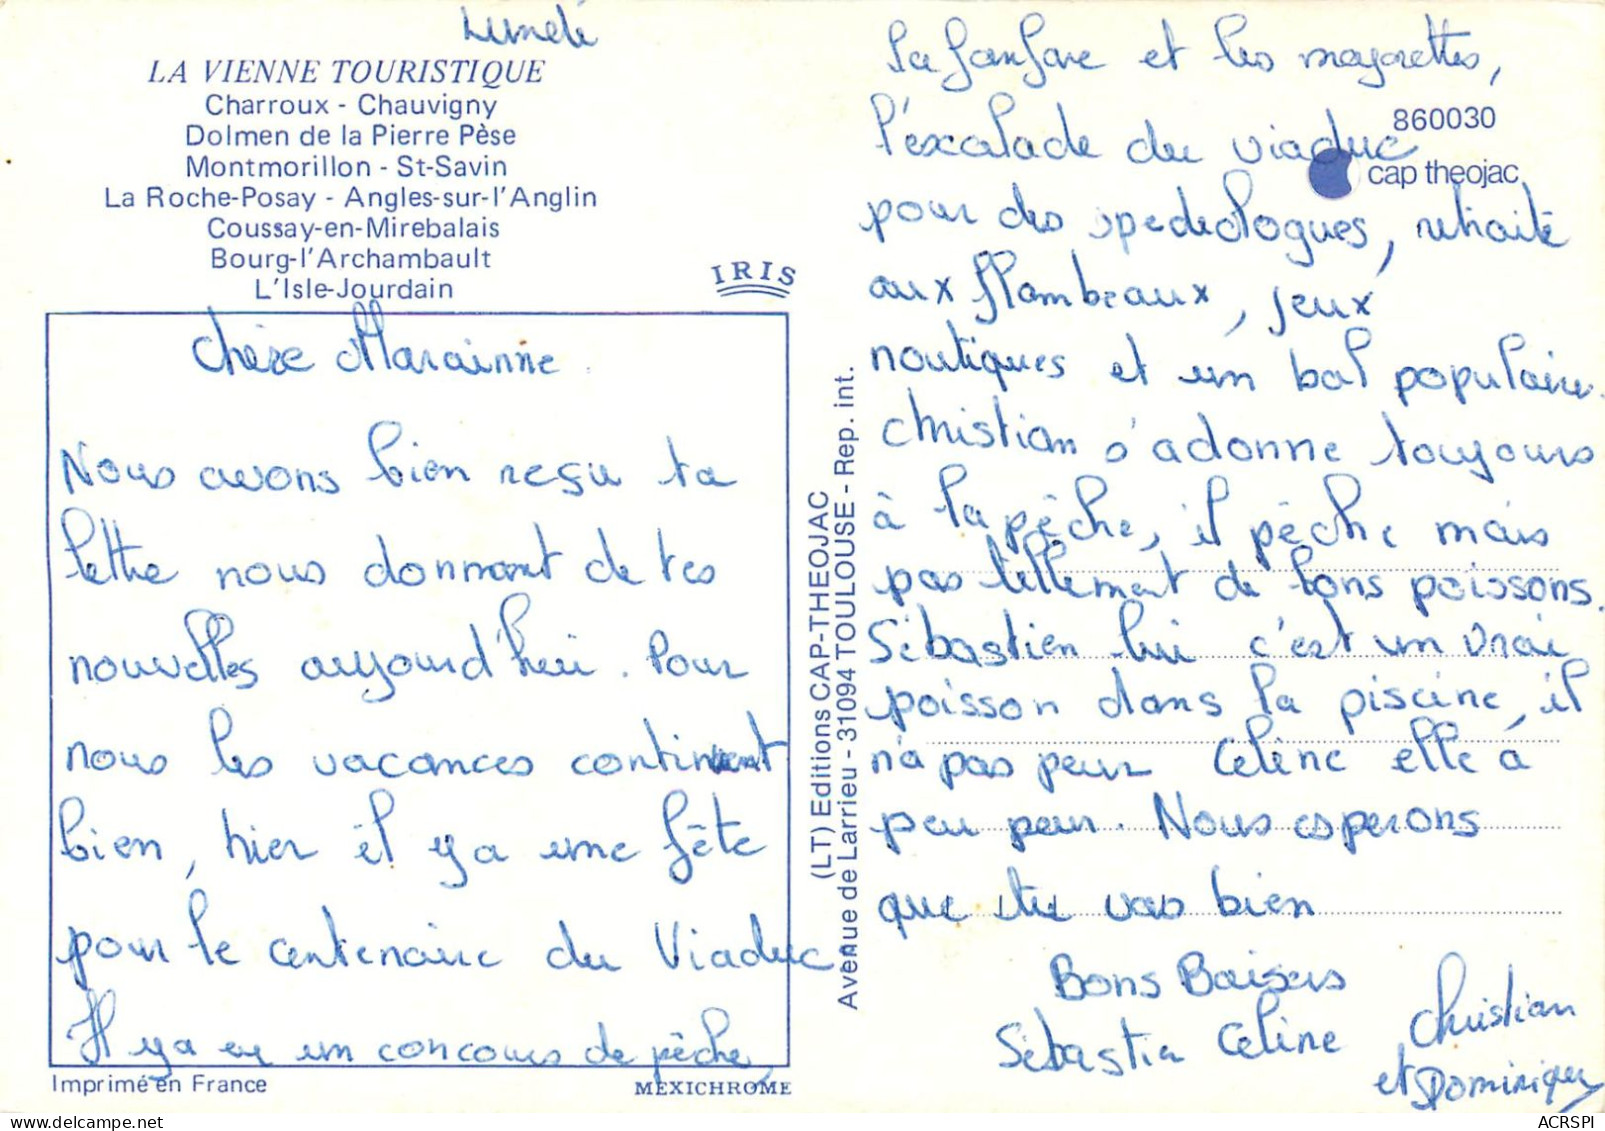 Lundi
LA VIENNE TOURISTIQUE
Charroux - Chauvigny
Dolmen de la Pierre Pèse
Montmorillon - St-Savin
La Roche-Posay - Angles-sur-l'Anglin
Coussay-en-Mirebalais
Bourg-l'Archambault
L'Isle-Jourdain
IRIS
Chère Marainne
Nous avons bien resu ta
lettre nous donnant de tes
nouvelles aujourd'hui. Pour
nous les vacances continuent
bien, hier il y a une fête
pour le centenaire du Viaduc.
Il y a eu un concours de pêche,
Imprimé en France
MEXICHROME
(LT) Editions CAP-THEOJAC
Avenue de Larrieu - 31094 TOULOUSE - Rep. int.
860030
cap theojac
la fanfare et les majorettes,
l'escalade du viaduc
pour des spedeologues, retraite
aux flambeaux, jeux
nautiques et un bal populaire.
Christian s'adonne toujours
à la pêche, il pêche mais
pas tellement de bons poissons.
Sébastien lui c'est un vrai
poisson dans la piscine, il
n'a pas peur Celine elle à
peu peur. Nous esperons
que tu vas bien
Bons Baisers
Sébastien Celine Christian
et Dominique
ACRSPI